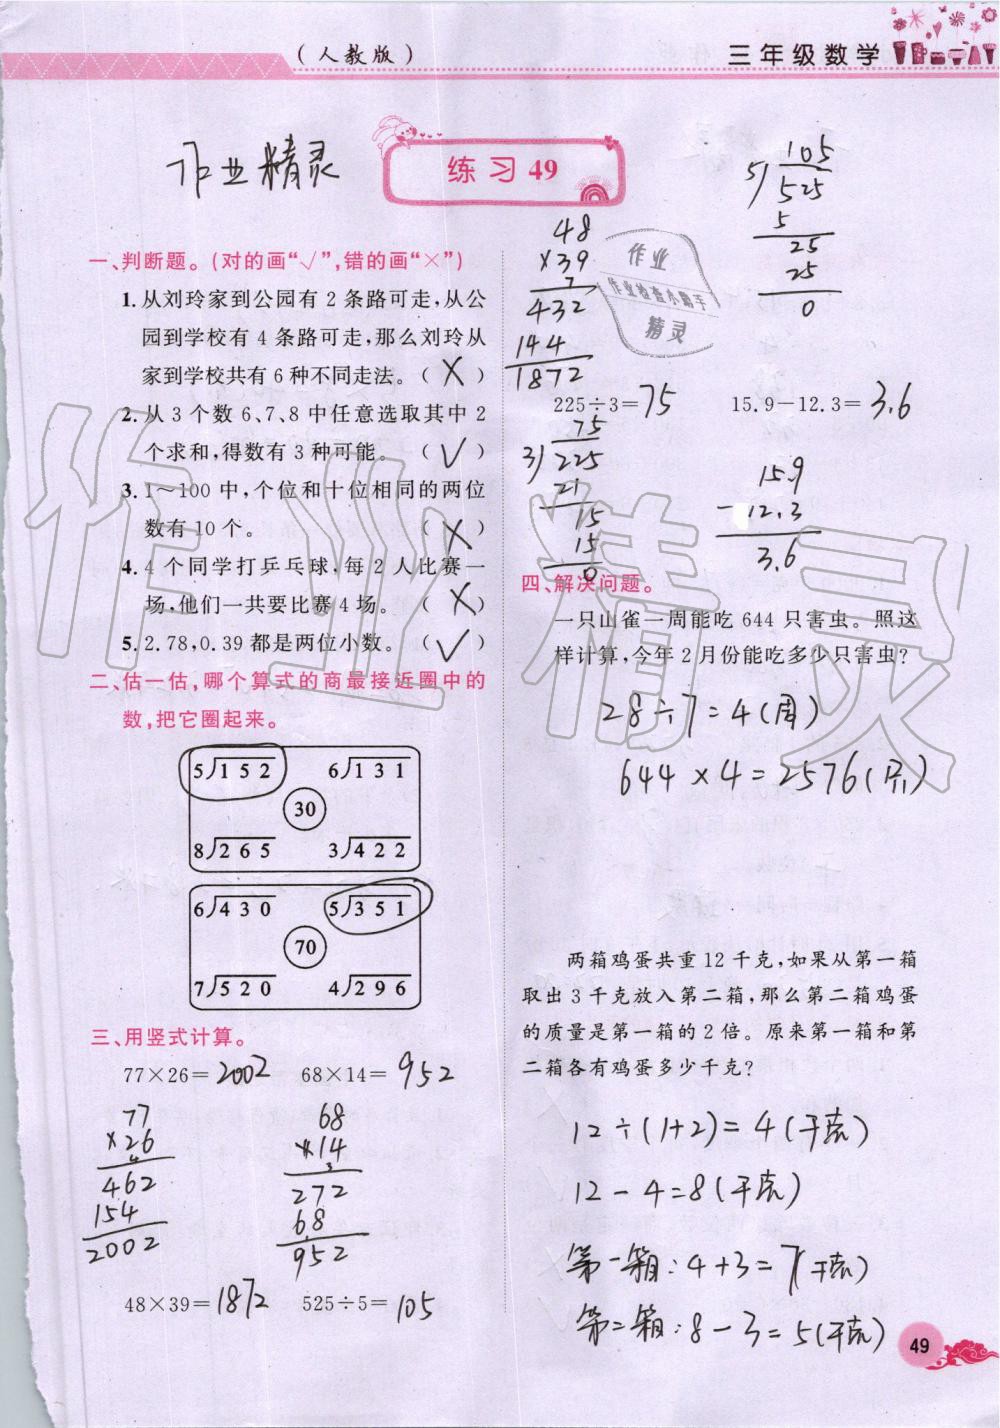 (人教版)
三年级数学
作业精灵
练习 49
一、判断题。(对的画“√”,错的画“×”)
1.从刘玲家到公园有 2 条路可走,从公
园到学校有 4 条路可走,那么刘玲从
家到学校共有 6 种不同走法。( × )
2.从 3 个数 6、7、8 中任意选取其中 2
个求和,得数有 3 种可能。 ( √ )
3.1~100 中,个位和十位相同的两位
数有 10 个。 ( × )
4.4 个同学打乒乓球,每 2 人比赛一
场,他们一共要比赛 4 场。 ( × )
5.2.78,0.39 都是两位小数。 ( √ )
二、估一估,哪个算式的商最接近圈中的
数,把它圈起来。
5)152 6)131
30
8)265 3)422
6)430 5)351
70
7)520 4)296
三、用竖式计算。
77×26=2002 68×14=952
77
×26
4
462
154
2002
68
×14
3
272
68
952
48×39=1872 525÷5=105
48
×39
7
432
144
1872
105
5)525
5
25
25
0
作业
作业检查小助手
精灵
225÷3=75 15.9-12.3=3.6
75
3)225
21
15
15
0
15.9
-12.3
3.6
四、解决问题。
一只山雀一周能吃 644 只害虫。照这
样计算,今年 2 月份能吃多少只害虫?
28÷7=4(周)
644×4=2576(只)
两箱鸡蛋共重 12 千克,如果从第一箱
取出 3 千克放入第二箱,那么第二箱鸡蛋
的质量是第一箱的 2 倍。原来第一箱和第
二箱各有鸡蛋多少千克?
12÷(1+2)=4(千克)
12-4=8(千克)
第一箱:4+3=7(千克)
第二箱:8-3=5(千克)
49
作业精灵